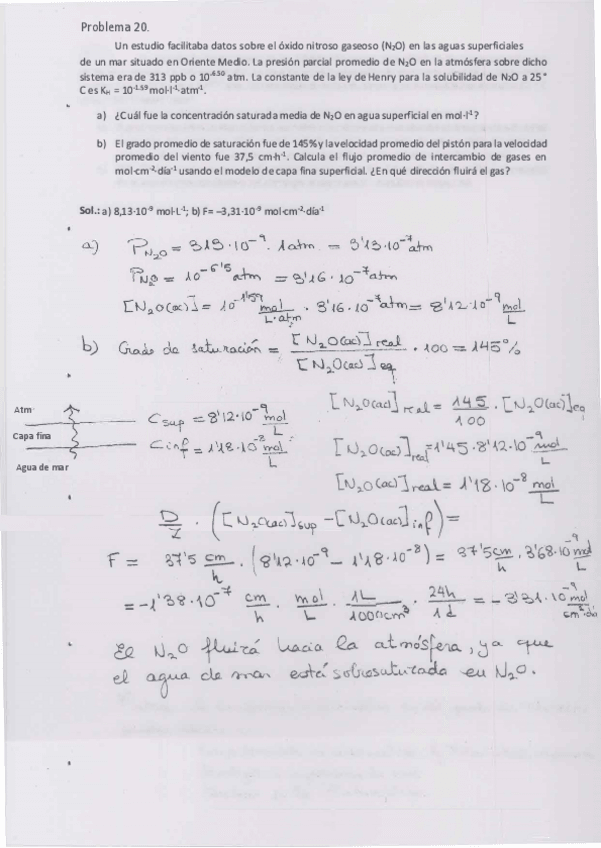 Problema 20.
Un estudio facilitaba datos sobre el óxido nitroso gaseoso (N₂O) en las aguas superficiales
de un mar situado en Oriente Medio. La presión parcial promedio de N₂O en la atmósfera sobre dicho
sistema era de 313 ppb o 10⁻⁶·⁵⁰ atm. La constante de la ley de Henry para la solubilidad de N₂O a 25 °
C es K_H = 10⁻¹·⁵⁹ mol·l⁻¹·atm⁻¹.
a) ¿Cuál fue la concentración saturada media de N₂O en agua superficial en mol·l⁻¹?
b) El grado promedio de saturación fue de 145% y la velocidad promedio del pistón para la velocidad
promedio del viento fue 37,5 cm·h⁻¹. Calcula el flujo promedio de intercambio de gases en
mol·cm⁻²·día⁻¹ usando el modelo de capa fina superficial. ¿En qué dirección fluirá el gas?
Sol.: a) 8,13·10⁻⁹ mol·L⁻¹; b) F= –3,31·10⁻⁹ mol·cm⁻²·día⁻¹
a) P_N₂O = 313·10⁻⁹ · 1atm = 3'13·10⁻⁷ atm
P_N₂O = 10⁻⁶'⁵ atm = 3'16·10⁻⁷ atm
[N₂O(ac)] = 10⁻¹'⁵⁹ mol/L·atm · 3'16·10⁻⁷ atm = 8'12·10⁻⁹ mol/L
b) Grado de saturación = [N₂O(ac)]real / [N₂O(ac)]eq · 100 = 145%
[N₂O(ac)]real = 145/100 · [N₂O(ac)]eq
Atm
Csup = 8'12·10⁻⁹ mol/L
Capa fina
Cinf = 1'18·10⁻⁸ mol/L
[N₂O(ac)]real = 1'45·8'12·10⁻⁹ mol/L
Agua de mar
[N₂O(ac)]real = 1'18·10⁻⁸ mol/L
D/Z · ([N₂O(ac)]sup − [N₂O(ac)]inf) =
F = 37'5 cm/h · (8'12·10⁻⁹ − 1'18·10⁻⁸) = 37'5 cm/h · 3'68·10⁻⁹ mol/L
= −1'38·10⁻⁷ cm/h · mol/L · 1L/1000cm³ · 24h/1d = −3'31·10⁻⁹ mol/cm²·día
El N₂O fluirá hacia la atmósfera, ya que
el agua de mar está sobresaturada en N₂O.